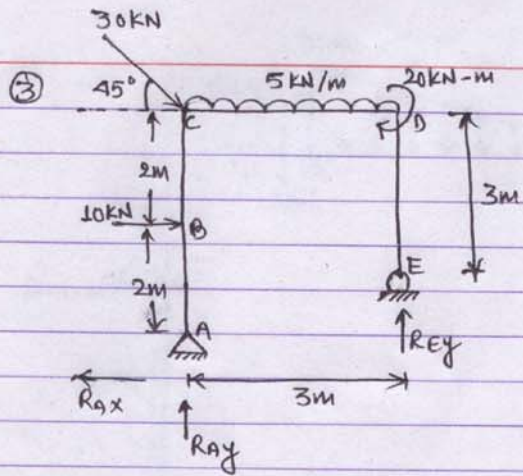 30KN
③
45°
5 KN/m
20KN-m
C
D
2m
3m
10KN
B
2m
E
A
REy
RAx
3m
RAy